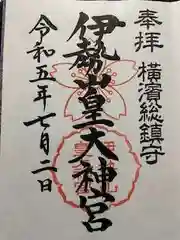 奉拝
横濱総鎮守
伊勢山皇大神宮
令和五年七月二日